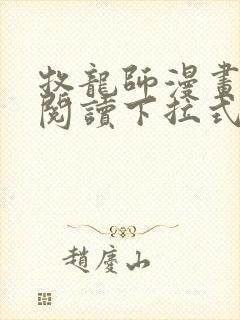 牧龍師漫畫
閱讀下拉式
趙慶山